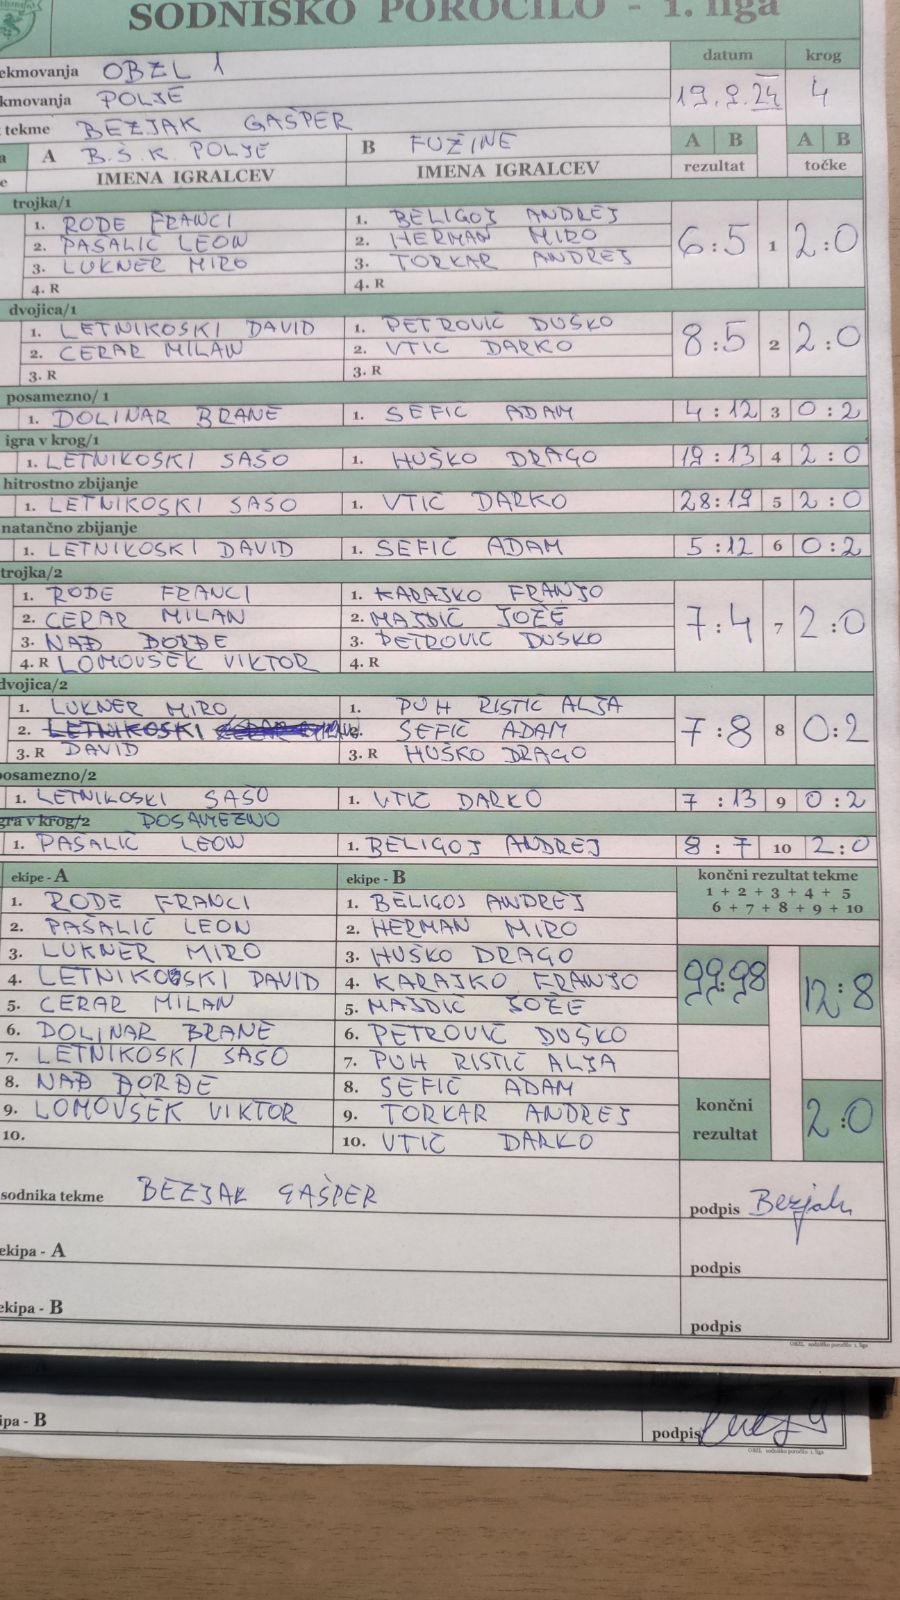 SODNIŠKO POROČILO - 1. liga
ekmovanja OBZL 1 datum krog
kmovanja POLJE 19.9.24 4
tekme BEZJAK GAŠPER A B A B
A B.Š.K. POLJE B FUŽINE rezultat točke
IMENA IGRALCEV IMENA IGRALCEV
trojka/1
1. RODE FRANCI 1. BELIGOJ ANDREJ
2. PAŠALIĆ LEON 2. HERMAN MIRO 6:5 1 2:0
3. LUKNER MIRO 3. TORKAR ANDREJ
4. R 4. R
dvojica/1
1. LETNIKOSKI DAVID 1. PETROVIČ DUŠKO 8:5 2 2:0
2. CERAR MILAN 2. VTIČ DARKO
3. R 3. R
posamezno/ 1
1. DOLINAR BRANE 1. SEFIČ ADAM 4:12 3 0:2
igra v krog/1
1. LETNIKOSKI SAŠO 1. HUŠKO DRAGO 19:13 4 2:0
hitrostno zbijanje
1. LETNIKOSKI SAŠO 1. VTIČ DARKO 28:19 5 2:0
natančno zbijanje
1. LETNIKOSKI DAVID 1. SEFIČ ADAM 5:12 6 0:2
trojka/2
1. RODE FRANCI 1. KARAJKO FRANJO
2. CERAR MILAN 2. MAJDIČ JOŽE 7:4 7 2:0
3. NAĐ ĐORĐE 3. PETROVIČ DUŠKO
4. R LOMOVŠEK VIKTOR 4. R
dvojica/2
1. LUKNER MIRO 1. PUH RISTIČ ALJA
2. LETNIKOSKI 2. SEFIČ ADAM 7:8 8 0:2
3. R DAVID 3. R HUŠKO DRAGO
posamezno/2
1. LETNIKOSKI SAŠO 1. VTIČ DARKO 7:13 9 0:2
gra v krog/2 POSAMEZNO
1. PAŠALIĆ LEON 1. BELIGOJ ANDREJ 8:7 10 2:0
ekipe - A ekipe - B končni rezultat tekme
1. RODE FRANCI 1. BELIGOJ ANDREJ 1 + 2 + 3 + 4 + 5
6 + 7 + 8 + 9 + 10
2. PAŠALIČ LEON 2. HERMAN MIRO
3. LUKNER MIRO 3. HUŠKO DRAGO
4. LETNIKOSKI DAVID 4. KARAJKO FRANJO 99:98 12:8
5. CERAR MILAN 5. MAJDIČ JOŽE
6. DOLINAR BRANE 6. PETROVIČ DUŠKO
7. LETNIKOSKI SAŠO 7. PUH RISTIČ ALJA
8. NAĐ ĐORĐE 8. SEFIČ ADAM
9. LOMOVŠEK VIKTOR 9. TORKAR ANDREJ končni rezultat 2:0
10. 10. VTIČ DARKO
sodnika tekme BEZJAK GAŠPER podpis Bezjak
ekipa - A podpis
ekipa - B podpis
OBZL sodniško poročilo 1. liga
ipa - B podpis
OBZL sodniško poročilo 1. liga